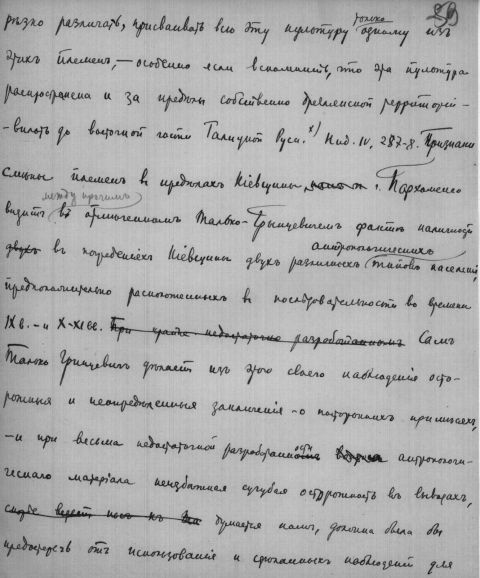 39
рѣзко различать, присваивать всю эту культуру только одному изъ
этихъ племенъ, — особенно если вспомнить, что эта культура
распространена и за предѣлы собственно древлянской территоріи -
- вплоть до восточной части Галицкой Руси. х) Нид. IV, 287-8. Признаки
смѣны племенъ въ предѣлахъ Кіевщины г. Пархоменко
видитъ между прочимъ въ отмѣченномъ Талько-Грынцевичемъ фактѣ наличности
двухъ въ погребеніяхъ Кіевщины двухъ различныхъ антропологическихъ типовъ населенія,
предположительно расположенныхъ въ послѣдовательности во времени
IX в. - и X-XI вв. При крайне недостаточно разработанномъ Самъ
Талько Грынцевичъ дѣлаетъ изъ этого своего наблюденія осто-
рожныя и неопредѣленныя заключенія - о постороннихъ примѣсяхъ,
- и при весьма недостаточной разработанности антропологи-
ческаго матеріала неизбѣжная сугубая осторожность въ выводахъ,
думается намъ, должна была бы
предостеречь отъ использованія и сдѣланныхъ наблюденій для